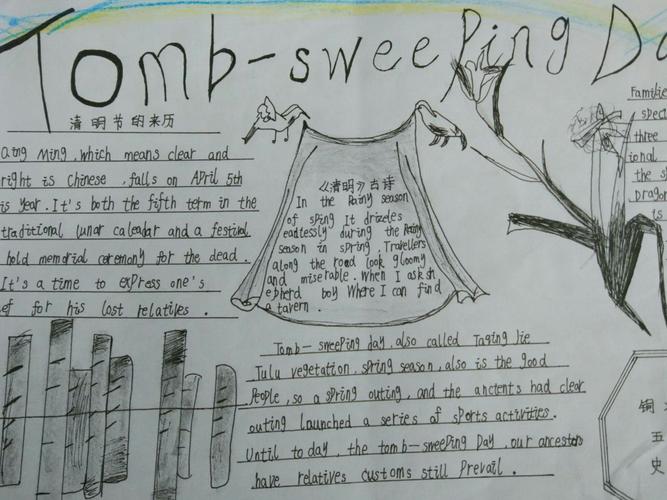 Tomb-sweeping Da
清明节的来历
Qing Ming, which means clear and
right is Chinese, falls on April 5th
is year. It's both the fifth term in the
traditional lunar caleadar and a festival
hold memorial ceremony for the dead.
It's a time to express one's
ef for his lost relatives.
《清明》古诗
In the Rainy season
of sping It drizeles
eadtessly during the Rainy
season in spring. Travellers
along the road look gloomy
and miserable. When I ask sh
epherd boy Where I can find
a tavern.
Tamb-sweeping day, also called Taqing Jie
Tulu vegetation, spring season, also is the good
People, so a spring outing, and the ancients had clear
outing launched a series of sports activities.
Until today, the tomb-sweeping Day, our ancestors
have relatives customs still Prevail.
Familie
spect
three
ional
the s
Dragon
is
铜
五
史